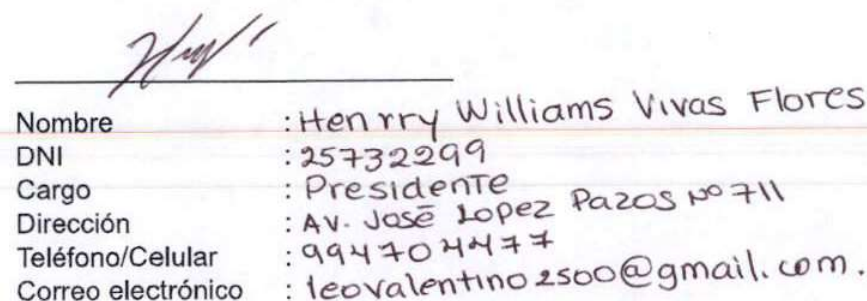 Nombre : Henrry Williams Vivas Flores
DNI : 25732299
Cargo : Presidente
Dirección : Av. José Lopez Pazos Nº 711
Teléfono/Celular : 994704477
Correo electrónico : leovalentino2500@gmail.com.